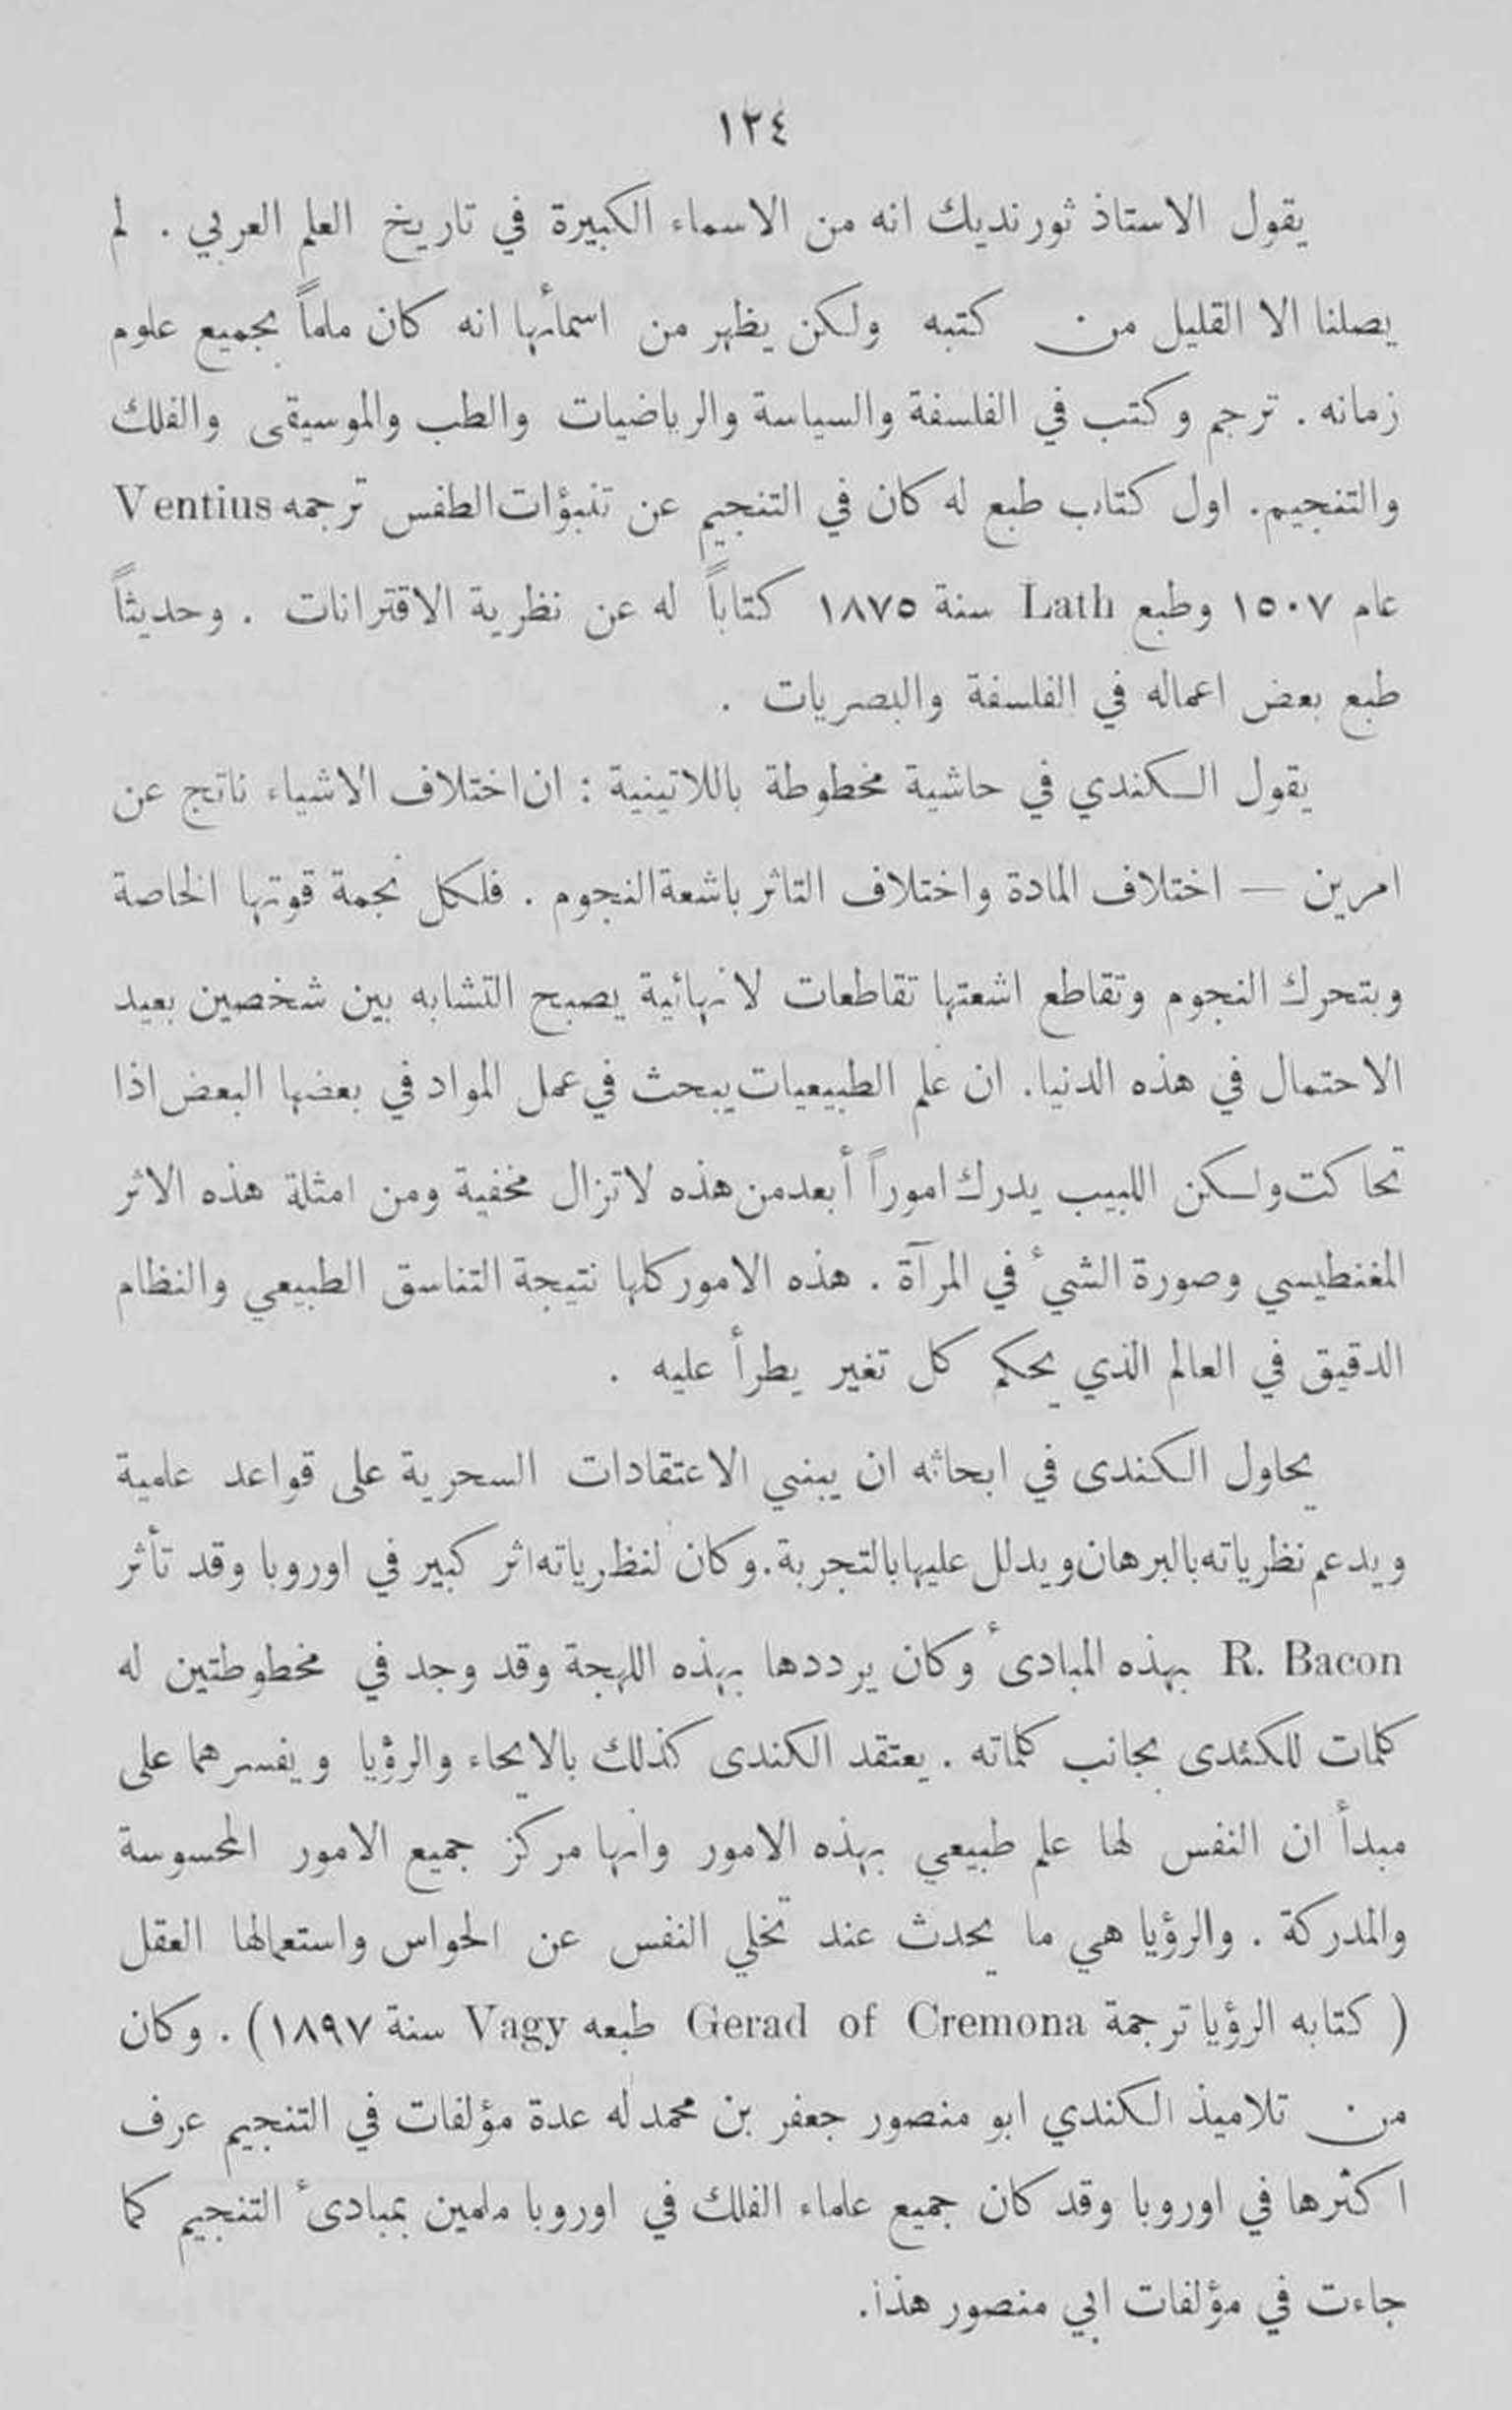 ١٢٤
يقول الاستاذ ثورنديك انه من الاسماء الكبيرة في تاريخ العلم العربي . لم
يصلنا الا القليل من كتبه ولكن يظهر من اسمائها انه كان ملماً بجميع علوم
زمانه . ترجم وكتب في الفلسفة والسياسة والرياضيات والطب والموسيقى والفلك
والتنجيم. اول كتاب طبع له كان في التنجيم عن تنبؤات الطقس ترجمه Ventius
عام ١٥٠٧ وطبع Lath سنة ١٨٧٥ كتاباً له عن نظرية الاقترانات . وحديثاً
طبع بعض اعماله في الفلسفة والبصريات .
يقول الكندي في حاشية مخطوطة باللاتينية : ان اختلاف الاشياء ناتج عن
امرين — اختلاف المادة واختلاف التاثر باشعة النجوم . فلكل نجمة قوتها الخاصة
وبتحرك النجوم وتقاطع اشعتها تقاطعات لانهائية يصبح التشابه بين شخصين بعيد
الاحتمال في هذه الدنيا. ان علم الطبيعيات يبحث في عمل المواد في بعضها البعض اذا
تحاكت ولكن اللبيب يدرك اموراً أبعد من هذه لاتزال مخفية ومن امثلة هذه الاثر
المغنطيسي وصورة الشيء في المرآة . هذه الامور كلها نتيجة التناسق الطبيعي والنظام
الدقيق في العالم الذي يحكم كل تغير يطرأ عليه .
يحاول الكندى في ابحاثه ان يبني الاعتقادات السحرية على قواعد علمية
ويدعم نظرياته بالبرهان ويدلل عليها بالتجربة. وكان لنظرياته اثر كبير في اوروبا وقد تأثر
R. Bacon بهذه المبادىء وكان يرددها بهذه اللهجة وقد وجد في مخطوطتين له
كلمات للكندى بجانب كلماته . يعتقد الكندى كذلك بالايحاء والرؤيا ويفسرهما على
مبدأ ان النفس لها علم طبيعي بهذه الامور وانها مركز جميع الامور المحسوسة
والمدركة . والرؤيا هي ما يحدث عند تخلي النفس عن الحواس واستعمالها العقل
( كتابه الرؤيا ترجمة Gerad of Cremona طبعه Vagy سنة ١٨٩٧) . وكان
من تلاميذ الكندي ابو منصور جعفر بن محمد له عدة مؤلفات في التنجيم عرف
اكثرها في اوروبا وقد كان جميع علماء الفلك في اوروبا ملمين بمبادىء التنجيم كما
جاءت في مؤلفات ابي منصور هذا.